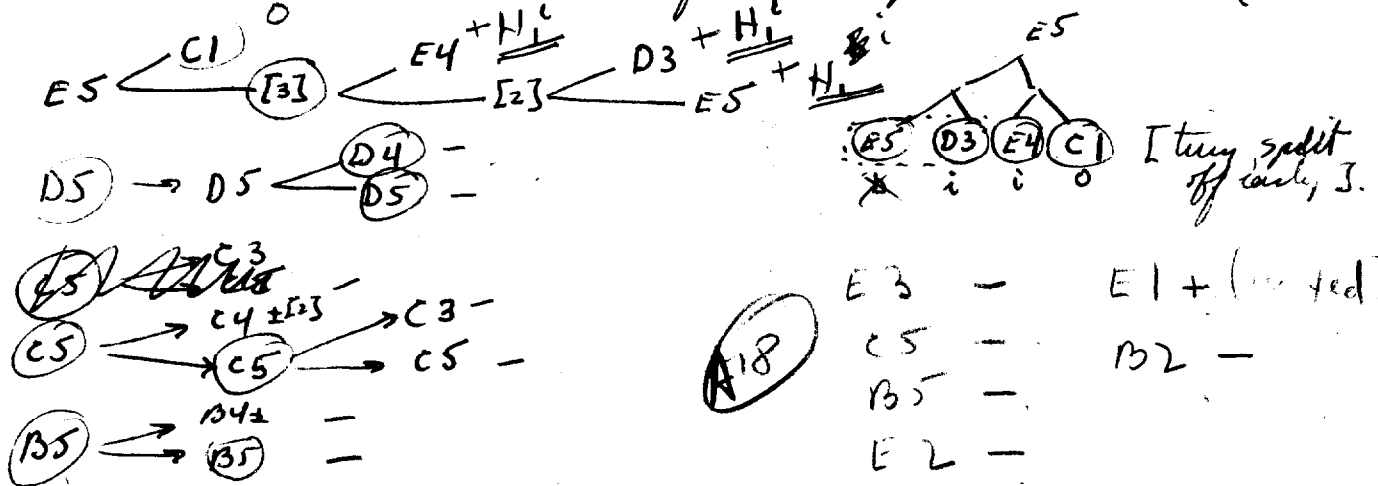 0
E5 C1 [3] E4 + H₁ⁱ [2] D3 + H₁ⁱ E5 + H₁
E5
E5 D3 E4 C1
i i 0
[they split off early].
D5 → D5 D4 −
D5 −
C5 C3 −
C5 C4 ±[2] C5 C3 −
C5 −
B5 B4± −
B5 −
A18
E3 − E1 +
C5 − B2 −
B5 −
E2 −